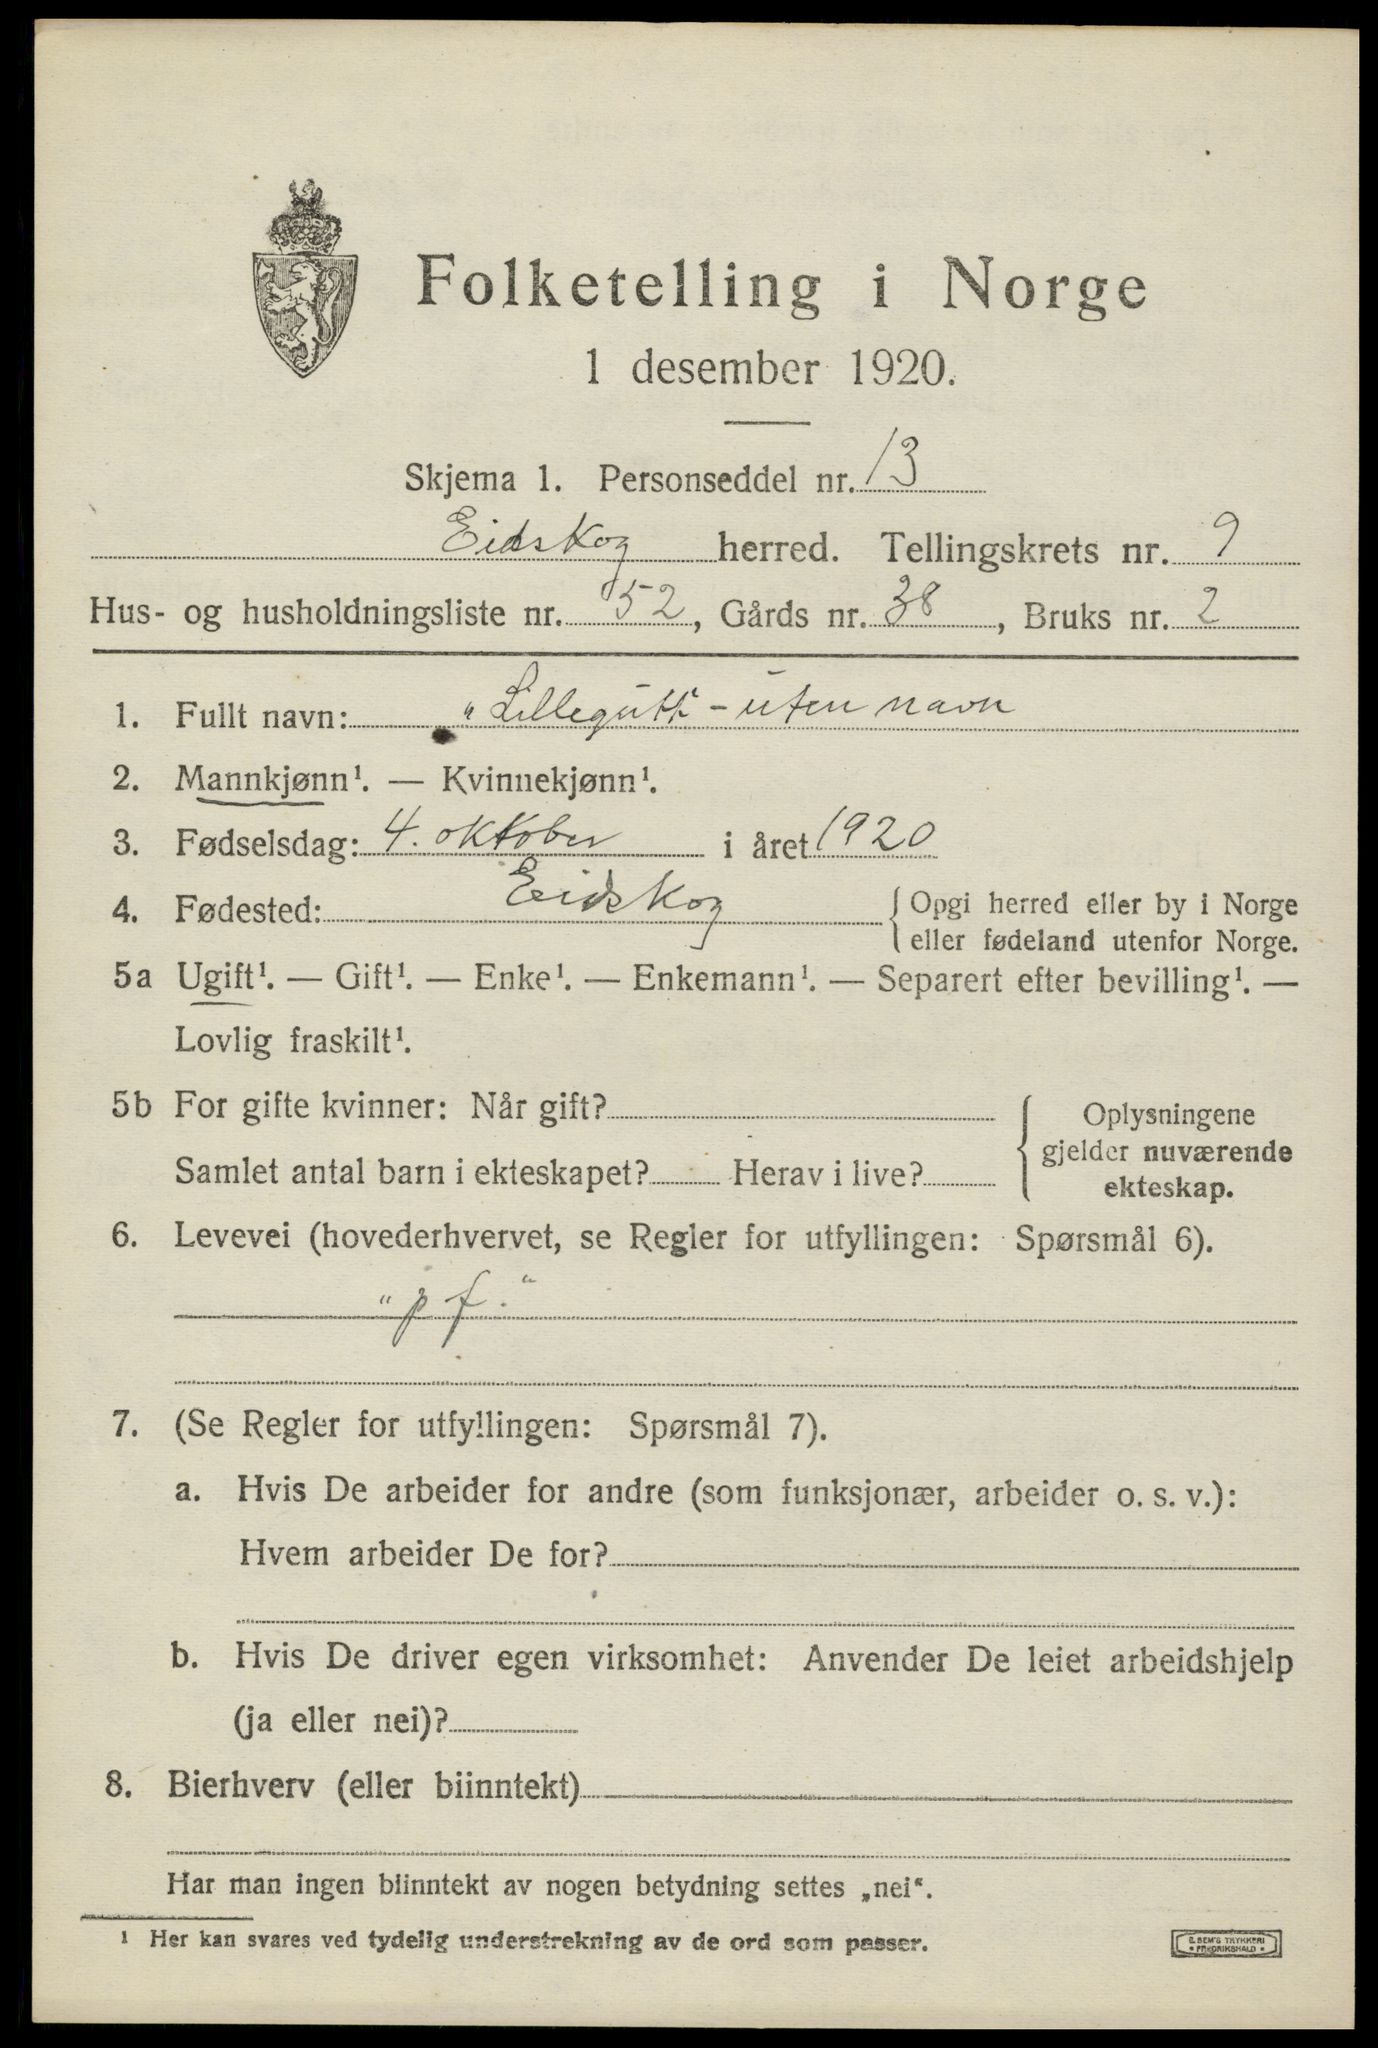 Folketelling i Norge
1 desember 1920.
Skjema 1. Personseddel nr. 13
Eidskog herred. Tellingskrets nr. 9
Hus- og husholdningsliste nr. 52, Gårds nr. 38, Bruks nr. 2
1. Fullt navn: „Lillegutt“ - uten navn
2. Mannkjønn¹. — Kvinnekjønn¹.
3. Fødselsdag: 4. oktober i året 1920
4. Fødested: Eidskog { Opgi herred eller by i Norge
eller fødeland utenfor Norge.
5a Ugift¹. — Gift¹. — Enke¹. — Enkemann¹. — Separert efter bevilling¹. —
Lovlig fraskilt¹.
5b For gifte kvinner: Når gift?
Samlet antal barn i ekteskapet? Herav i live?
Oplysningene
gjelder nuværende
ekteskap.
6. Levevei (hovederhvervet, se Regler for utfyllingen: Spørsmål 6).
„pf.“
7. (Se Regler for utfyllingen: Spørsmål 7).
a. Hvis De arbeider for andre (som funksjonær, arbeider o. s. v.):
Hvem arbeider De for?
b. Hvis De driver egen virksomhet: Anvender De leiet arbeidshjelp
(ja eller nei)?
8. Bierhverv (eller biinntekt)
Har man ingen biinntekt av nogen betydning settes „nei“.
¹ Her kan svares ved tydelig understrekning av de ord som passer.
E. SEM'S TRYKKERI
• FREDRIKSHALD •